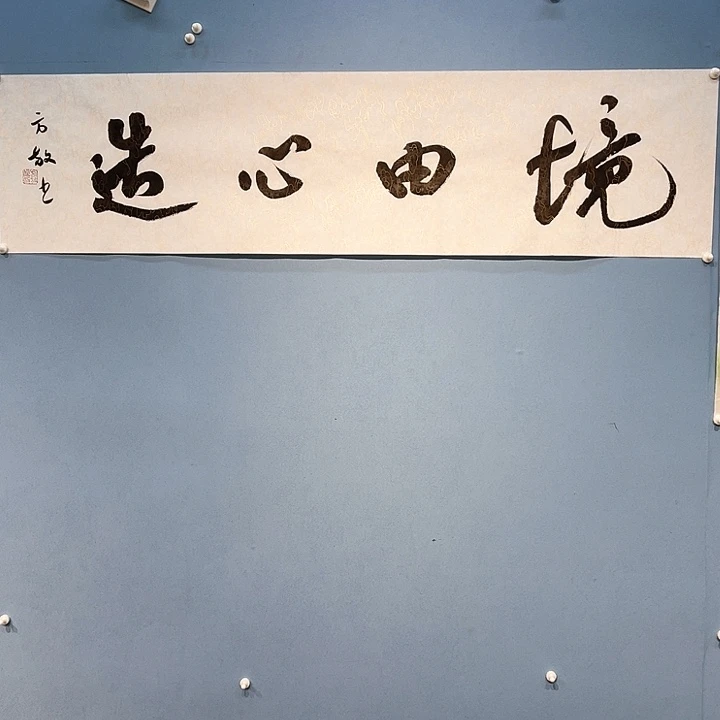 境由心造
方敬书